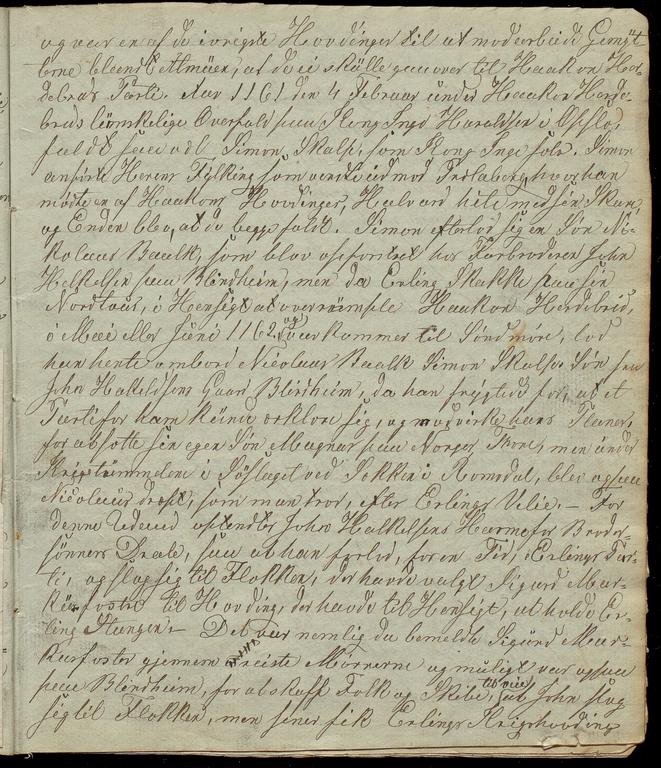 og var en af de ivrigste Hövdinger til at modarbeide Gemyt
terne blandt Almüen, at de ei skülle gaae over til Haakon Her-
debreds Parti. Aar 1161 den 4 Februar ünder Haakon Herde-
breds lümskelige Overfald paa Kong Inge Haraldsen i Opslo,
faldt saavel Simon Skalp, som Kong Inge selv. Simon
anförte Herens Fylking som vendte ud mod Trælaborg, hvor han
mödte en af Haakons Hövdinger, Halvard hele med sin Skare,
og Enden blev, at de begge faldt. Simon efterlod sig en Sön Ni-
kolaus Baulk, som blev opfostret hos Farbroderen John
Helkelsen paa Blindheim, men da Erling Skakke paa sin
Nordtour, i Hensigt at overrümple Haakon Herdebred,
i Mai eller Jüni 1162, og var kommen til Söndmöre, lod
han hente ombord Nicolaus Baulk Simon Skalps Sön fra
John Halkelsens Gaard Blindheim, da han frygtede for, at et
Parti for ham künde erklære sig, og modvirke hans Planer,
for at sætte sin egen Sön Magnus paa Norges Throne, men ünder
Krigstümmelen i Söslaget ved Sekken i Romsdal, blev ogsaa
Nicolaus dræbt, som man tror, efter Erlings Villie. – For
denne Udaad optændtes John Halkelsens Harme for Broder-
sönnens Drab, saa at han forlod, for en Tid, Erlings Par-
ti, og slog sig til Flokken, der havde valgt Sigurd Mar-
küsfostre til Hövding, der havde til Hensigt, at holde Er-
ling Stangen. – Det var nemlig da bemeldte Sigurd Mar-
kusfoster gjennem reiste Mörerne og müligt var ogsaa
paa Blindheim, for at skaffe Folk og Skibe, at John slog
sig til Flokken, men siner fik Erlings Krigshövding